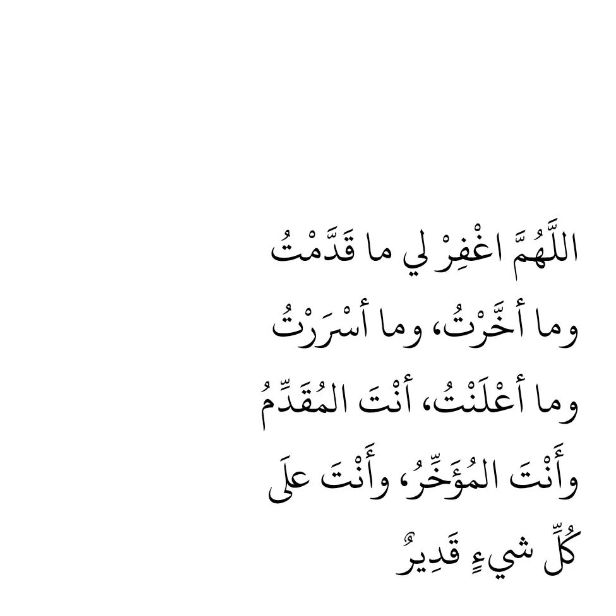 اللَّهُمَّ اغْفِرْ لي ما قَدَّمْتُ
وما أخَّرْتُ، وما أسْرَرْتُ
وما أعْلَنْتُ، أنْتَ المُقَدِّمُ
وأَنْتَ المُؤَخِّرُ، وأَنْتَ علَى
كُلِّ شيءٍ قَدِيرٌ